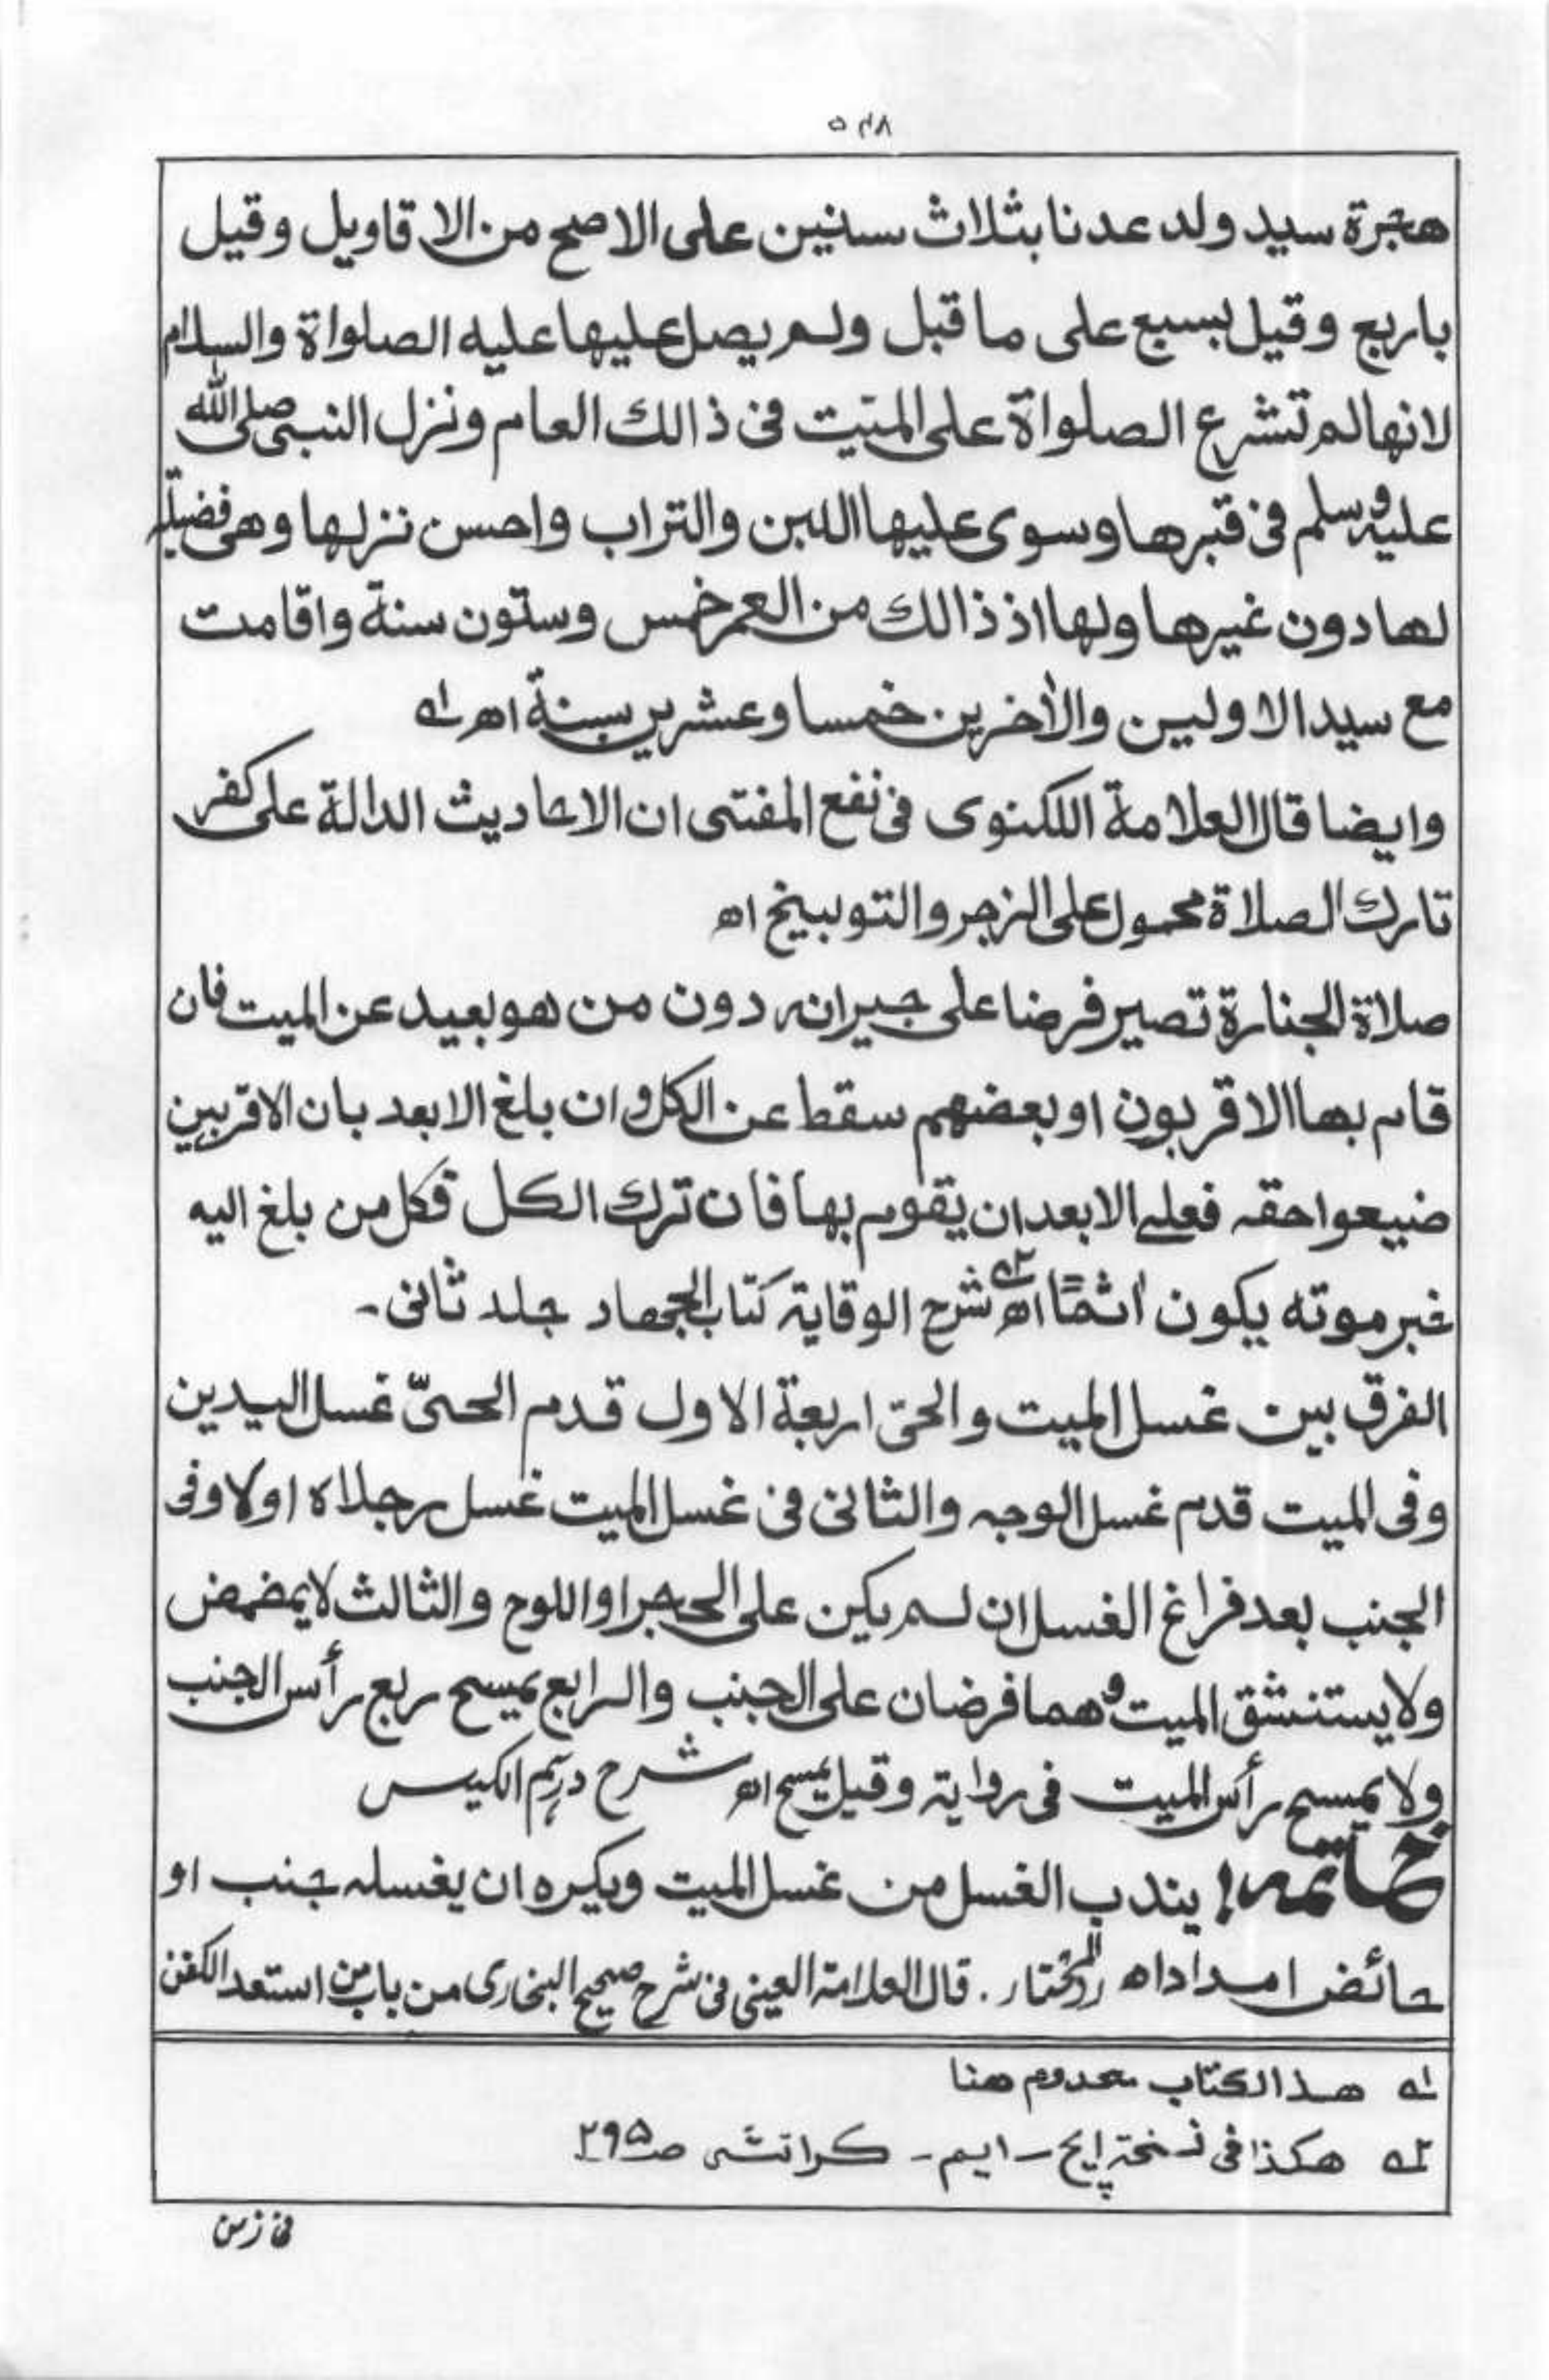 ۵۴۸
هجرة سيد ولد عدنا بثلاث سنين على الاصح من الاقاويل وقيل
باربع وقيل بسبع على ما قبل ولم يصل عليها عليه الصلواة والسلام
لانها لم تشرع الصلواة على الميّت فى ذالك العام ونزل النبى صلى الله
عليه وسلم فى قبرها وسوى عليها اللبن والتراب واحسن نزلها وهى فضيلة
لها دون غيرها ولها اذ ذالك من العمر خمس وستون سنة واقامت
مع سيد الاولين والأخرين خمسا وعشرين سنة اھ ؎۱
وايضا قال العلامة اللكنوى فى نفع المفتى ان الاحاديث الدالة على كفر
تارك الصلاة محمول على الزجر والتوبيخ اھ
صلاة الجنازة تصير فرضا على جيرانه دون من هو بعيد عن الميت فان
قام بها الاقربون او بعضهم سقط عن الكل وان بلغ الابعد بان الاقربين
ضيعوا حقه فعلى الابعد ان يقوم بها فان ترك الكل فكل من بلغ اليه
خبر موته يكون اثمًا اھ ؎۲ شرح الوقاية كتاب الجهاد جلد ثانى۔
الفرق بين غسل الميت والحىّ اربعة الاول قدم الحىّ غسل اليدين
وفى الميت قدم غسل الوجه والثانى فى غسل الميت غسل رجلاه اولا وفى
الجنب بعد فراغ الغسل ان لم يكن على الحجر او اللوح والثالث لا يمضمض
ولا يستنشق الميت وهما فرضان على الجنب والرابع يمسح ربع رأس الجنب
ولا يمسح رأس الميت فى رواية وقيل يمسح اھ شرح دريم الكيس
خاتمه! يندب الغسل من غسل الميت ويكره ان يغسله جنب او
حائض امداد اھ رد المختار. قال العلامة العينى فى شرح صحيح البخارى من باب من استعد الكفن
؎۱ هذا الكتاب معدوم هنا
؎۲ هكذا فى نسخة ايچ۔ ايم۔ كراتشى صـ۲۹۵
فى زمن